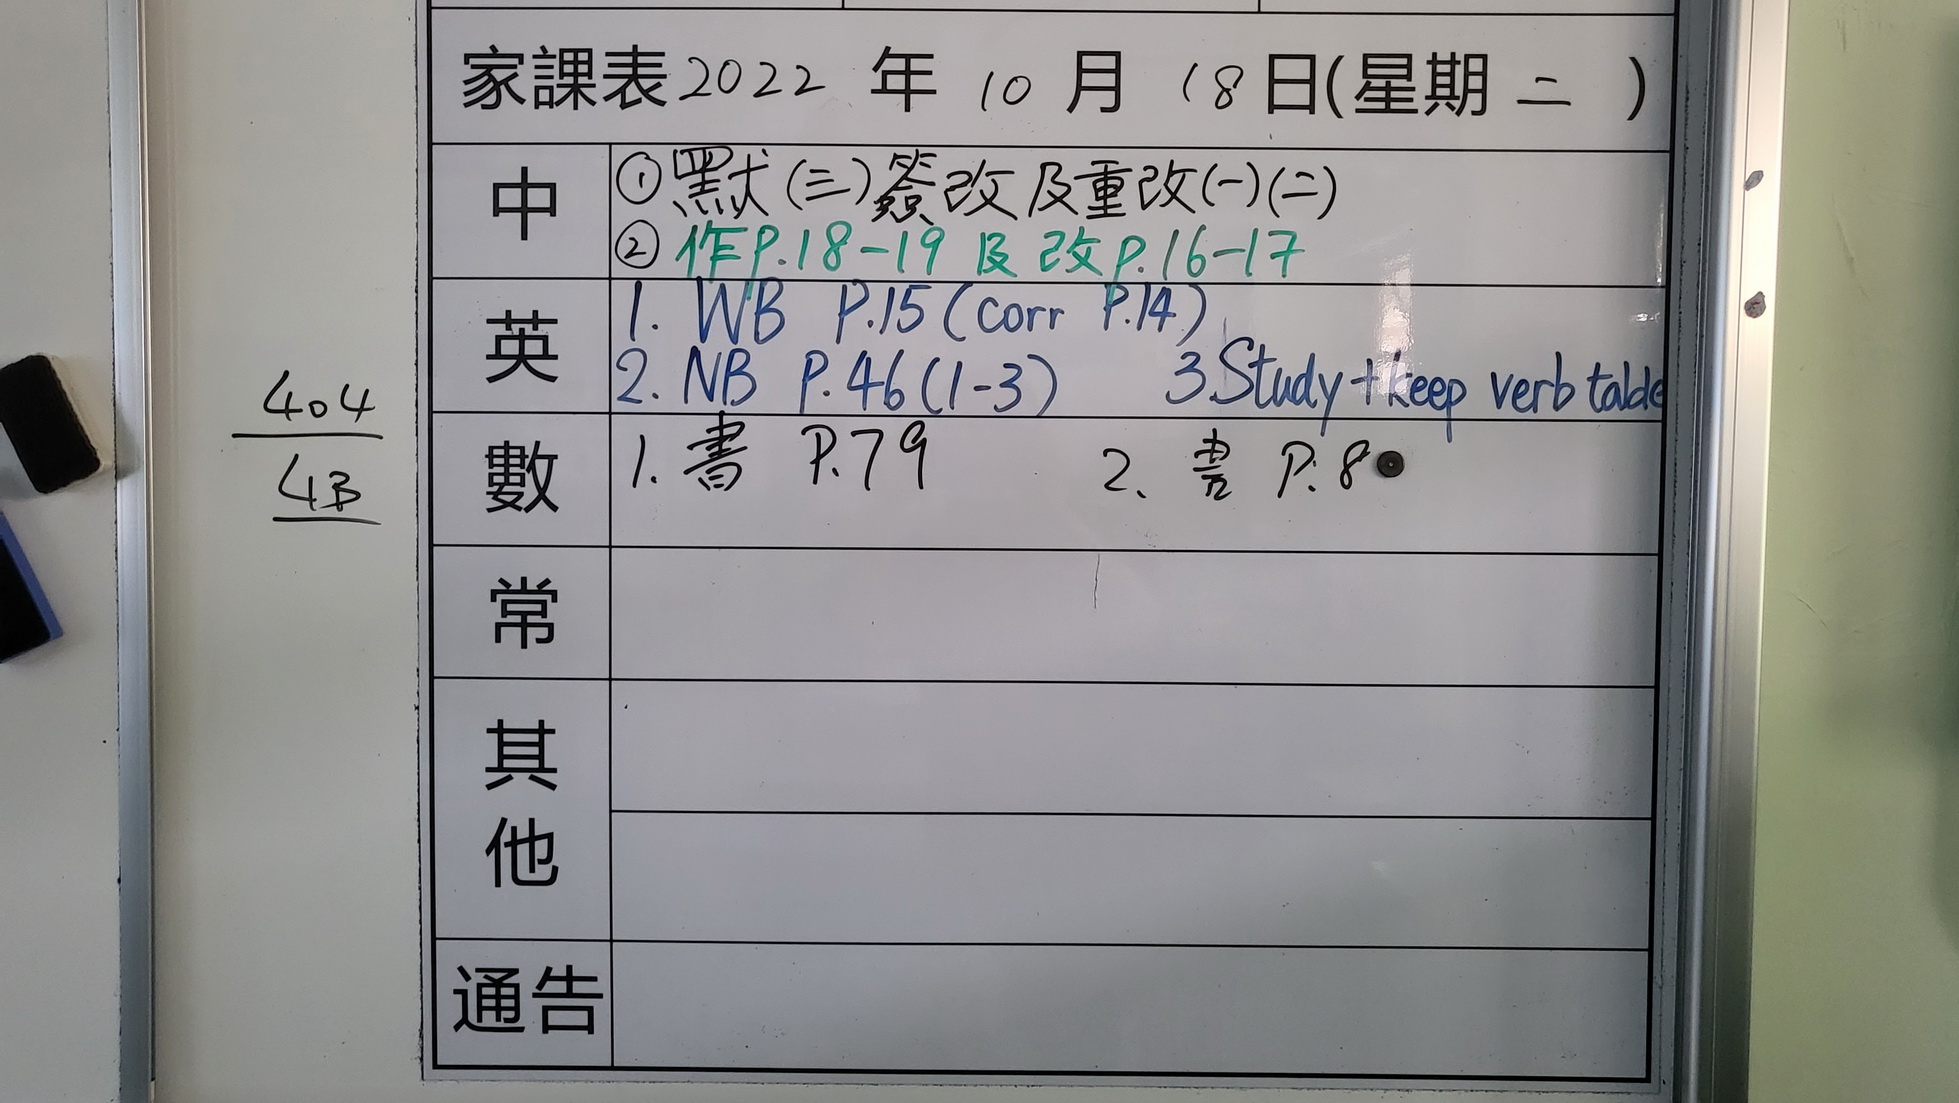 家課表 2022 年 10 月 18 日(星期 二 )
中
①默(三)簽改及重改(一)(二)
②作P.18-19 及 改P.16-17
英
1. WB P.15 (corr P.14)
2. NB P.46 (1-3) 3. Study + keep verb table
數
1. 書 P.79 2. 書 P.8
常
其他
通告
404
4B